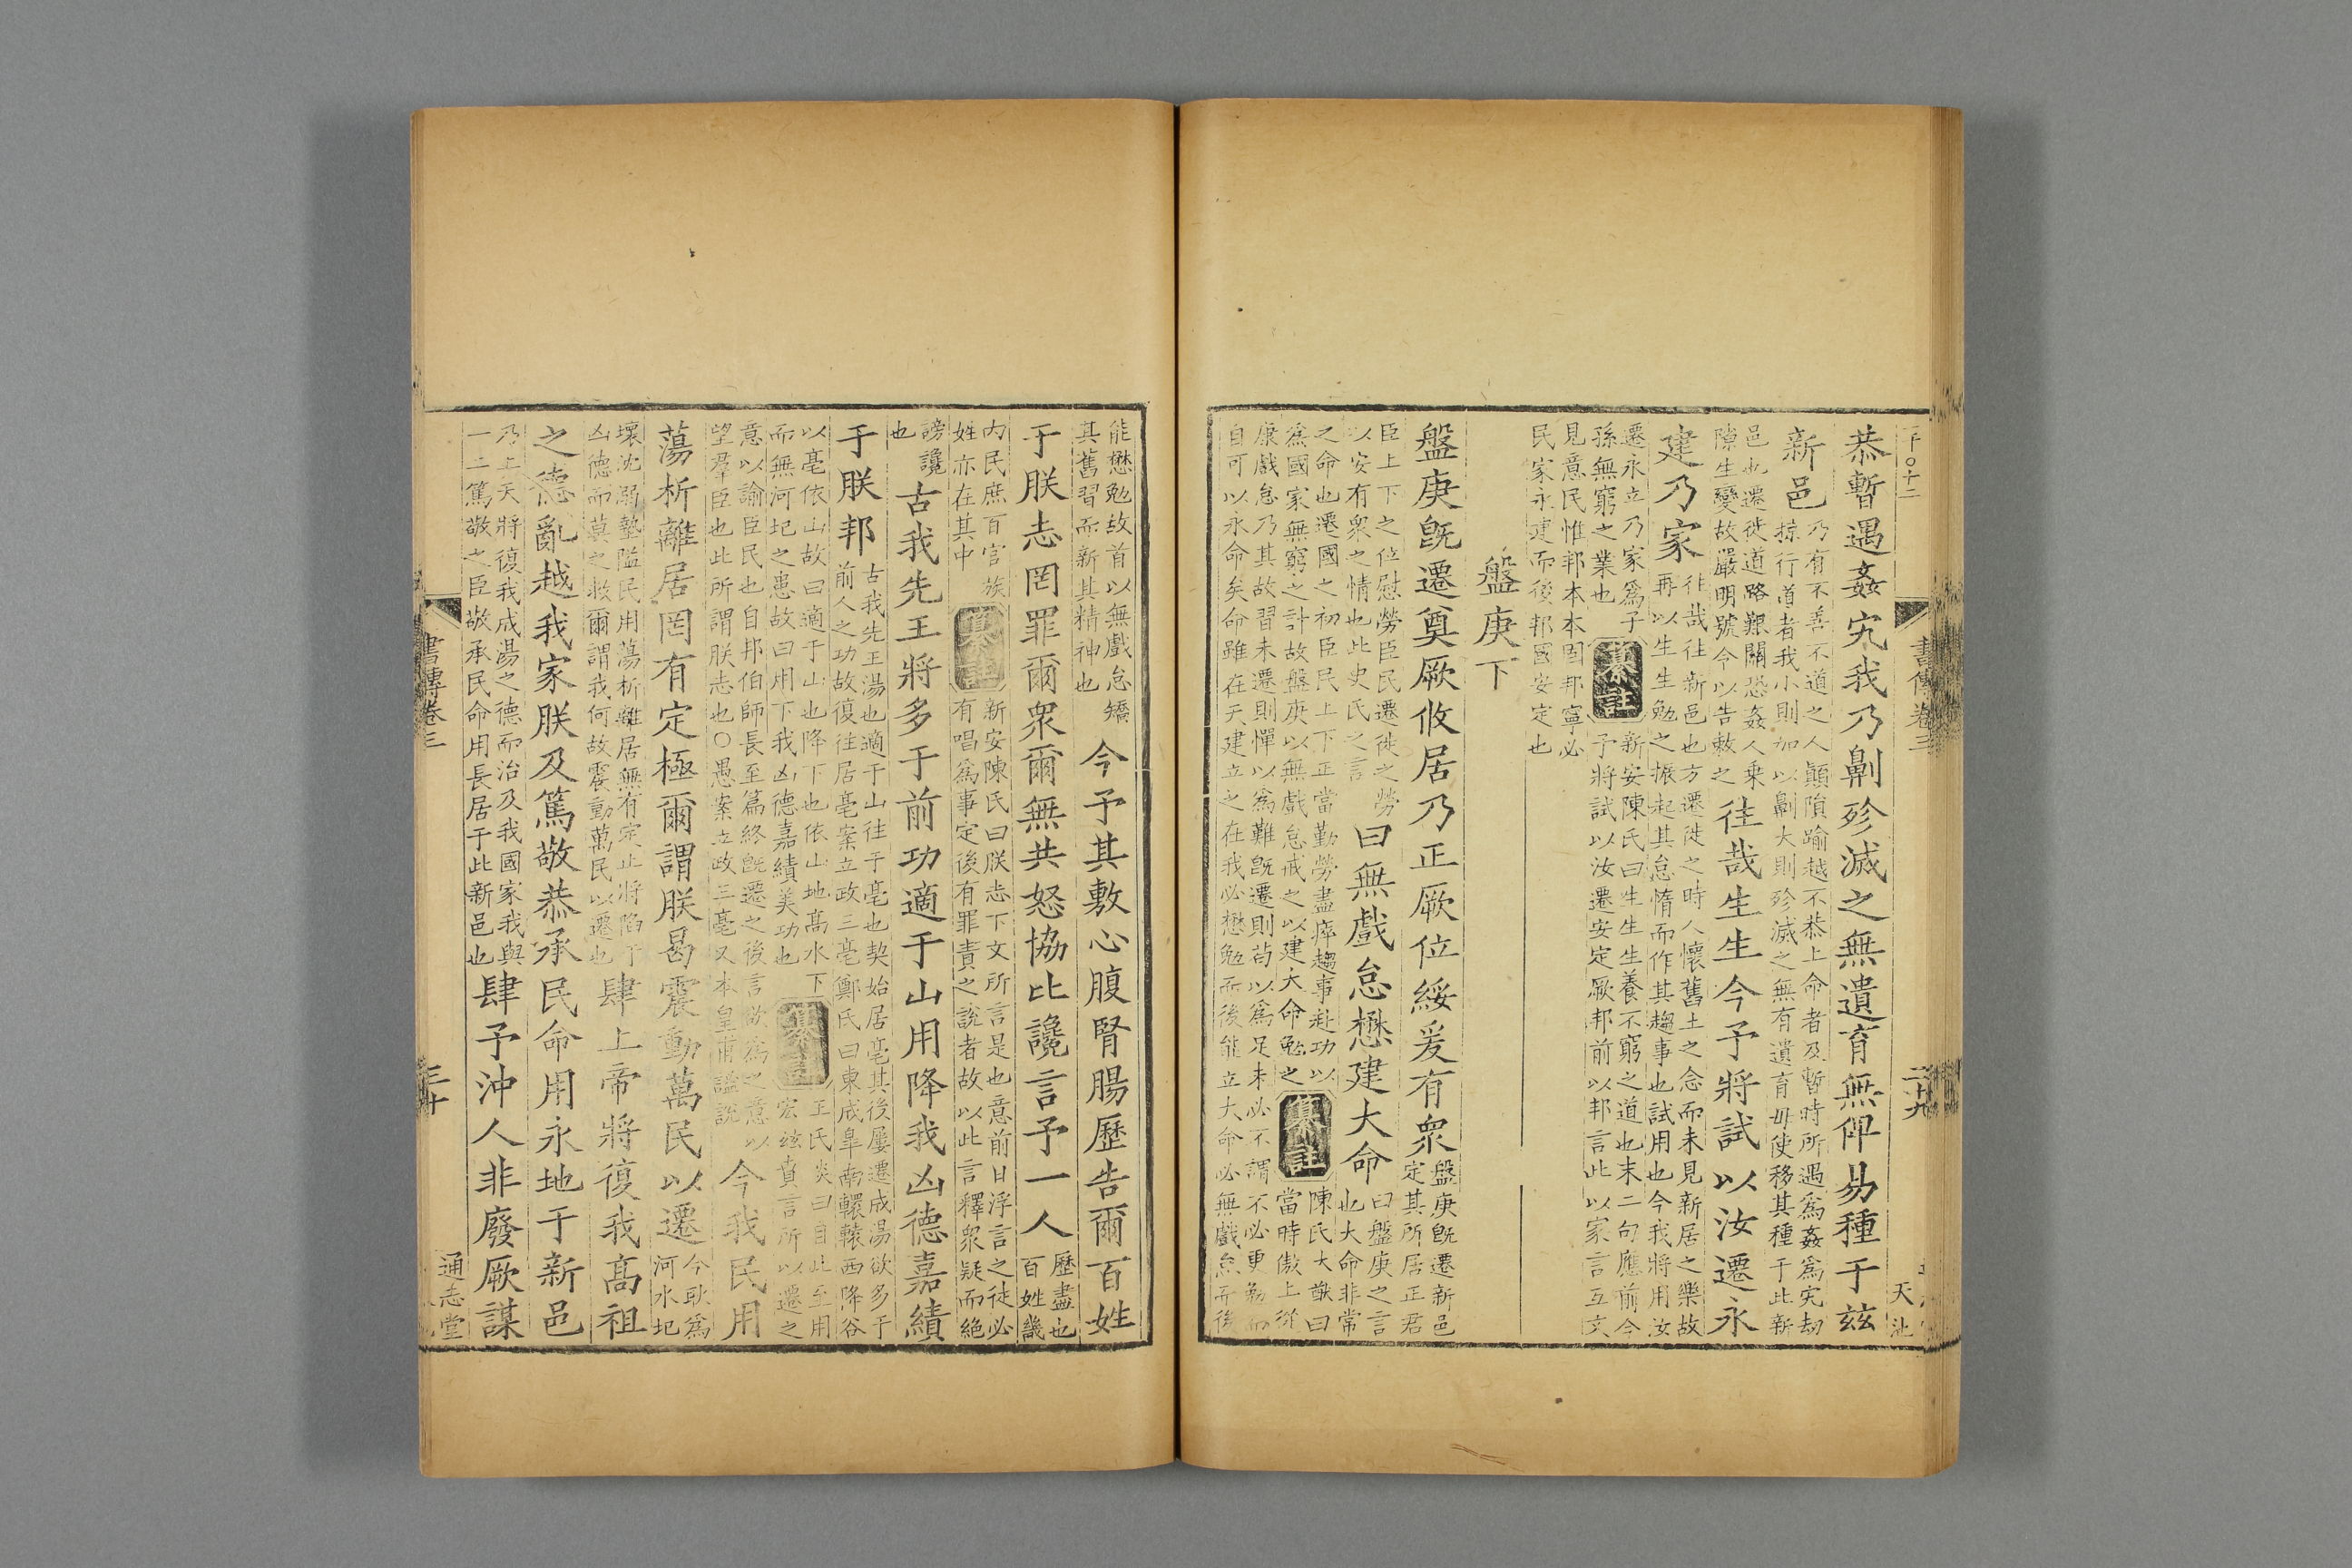 恭暫遇姦宄我乃劓殄滅之無遺育無俾易種于茲
新邑乃有不善不道之人顚隕踰越不恭上命者及暫時所遇爲姦爲宄劫
掠行道者我小則加以劓大則殄滅之無有遺育毋使移其種于此新
邑也遷徙道路艱關恐姦人乘
隙生變故嚴明號令以告敕之往哉生生今予將試以汝遷永
建乃家往哉往新邑也方遷徙之時人懷舊土之念而未見新居之樂故
再以生生勉之振起其怠惰而作其趨事也試用也今我將用汝
遷永立乃家爲子
孫無窮之業也纂註新安陳氏曰生生生養不窮之道也末二句應前今
予將試以汝遷安定厥邦前以邦言此以家言互文
見意民惟邦本本固邦寧必
民家永建而後邦國安定也
盤庚下
盤庚旣遷奠厥攸居乃正厥位綏爰有衆盤庚旣遷新邑
定其所居正君
臣上下之位慰勞臣民遷徙之勞
以安有衆之情也此史氏之言曰無戲怠懋建大命曰盤庚之言
也大命非常
之命也遷國之初臣民上下正當勤勞盡瘁趨事赴功以
爲國家無窮之計故盤庚以無戲怠戒之以建大命勉之纂註陳氏大猷曰
當時傲上從
康戲怠乃其故習未遷則憚以爲難旣遷則苟以爲足未必不謂不必更勉而
自可以永命矣命雖在天建立之在我必懋勉而後能立大命必無戲怠弃後
能懋勉故首以無戲怠矯
其舊習而新其精神也今予其敷心腹腎腸歷告爾百姓
于朕志罔罪爾衆爾無共怒協比讒言予一人歷盡也
百姓畿
内民庶百官族
姓亦在其中纂註新安陳氏曰朕志下文所言是也意前日浮言之徒必
有唱爲事定後有罪責之說者故以此言釋衆疑而絶
謗讒
也古我先王將多于前功適于山用降我凶德嘉績
于朕邦古我先王湯也適于山往于亳也契始居亳其後屢遷成湯欲多于
前人之功故復往居亳案立政三亳鄭氏曰東成皐南轘轅西降谷
以亳依山故曰適于山也降下也依山地高水下
而無河圮之患故曰用下我凶德嘉績美功也纂註王氏炎曰自此至用
宏茲賁言所以遷之
意以諭臣民也自邦伯師長至篇終旣遷之後言欲爲之意以
望羣臣也此所謂朕志也○愚案立政三亳又本皇甫謐說今我民用
蕩析離居罔有定極爾謂朕曷震動萬民以遷今耿爲
河水圮
壞沈溺墊隘民用蕩析離居無有定止將陷于
凶德而莫之救爾謂我何故震動萬民以遷也肆上帝將復我高祖
之德亂越我家朕及篤敬恭承民命用永地于新邑
乃上天將復我成湯之德而治及我國家我與
一二篤敬之臣敬承民命用長居于此新邑也肆予沖人非廢厥謀
書傳卷三
二十九
天
書傳卷三
三十
通志堂